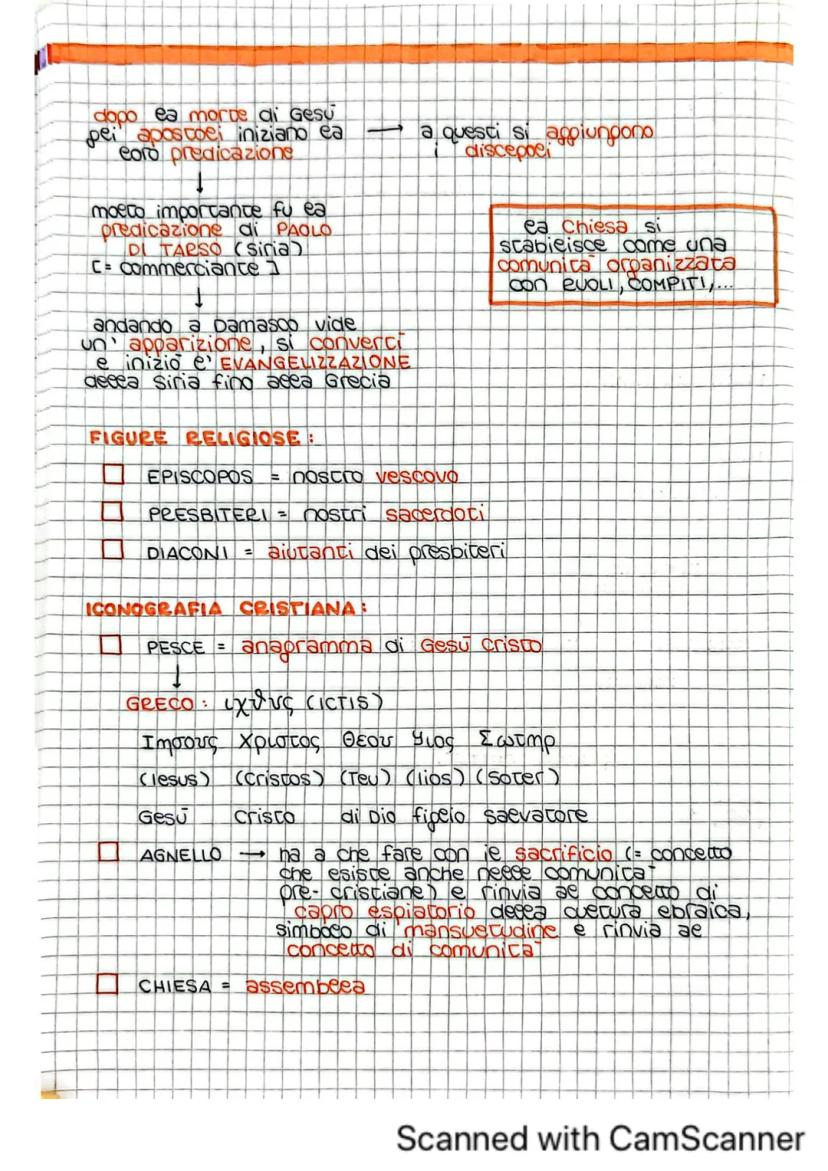 dopo la morte di Gesù
gli apostoli iniziano la → a questi si aggiungono
loro predicazione i discepoli
↓
molto importante fu la
predicazione di PAOLO
DI TARSO (Siria)
[= commerciante]
la Chiesa si
stabilisce come una
comunità organizzata
con RUOLI, COMPITI,...
↓
andando a Damasco vide
un'apparizione, si convertì
e iniziò l'EVANGELIZZAZIONE
della Siria fino alla Grecia
FIGURE RELIGIOSE:
□ EPISCOPOS = nostro vescovo
□ PRESBITERI = nostri sacerdoti
□ DIACONI = aiutanti dei presbiteri
ICONOGRAFIA CRISTIANA:
□ PESCE = anagramma di Gesù Cristo
↓
GRECO: ιχϑυς (ICTIS)
Iησους Χριστος Θεου Υιος Σωτηρ
(Iesus) (Cristos) (Teu) (Iios) (Soter)
Gesù Cristo di Dio figlio salvatore
□ AGNELLO → ha a che fare con il sacrificio (= concetto
che esiste anche nelle comunità
pre-cristiane) e rinvia al concetto di
capro espiatorio della cultura ebraica,
simbolo di mansuetudine e rinvia al
concetto di comunità
□ CHIESA = assemblea
Scanned with CamScanner